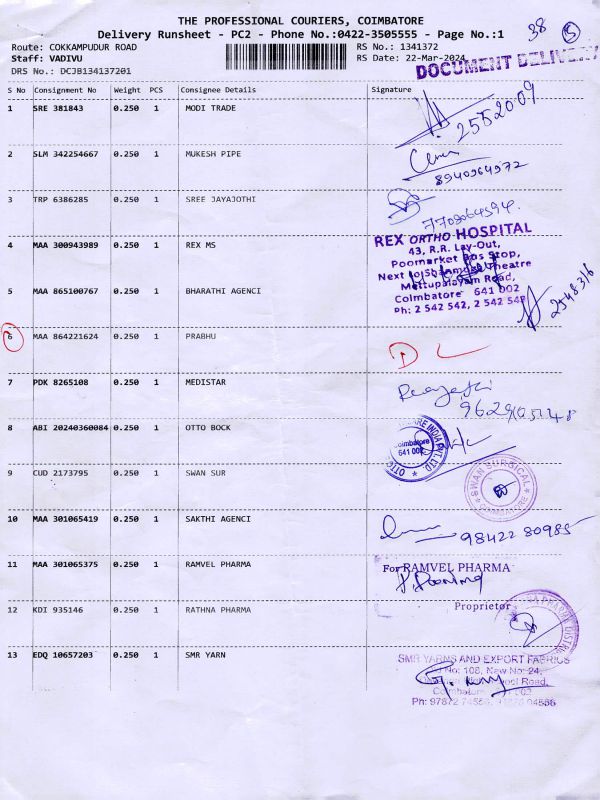 THE PROFESSIONAL COURIERS, COIMBATORE
Delivery Runsheet - PC2 - Phone No.:0422-3505555 - Page No.:1
38
5
Route: COKKAMPUDUR ROAD
RS No.: 1341372
Staff: VADIVU
RS Date: 22-Mar-2024
DRS No.: DCJB134137201
DOCUMENT DELIVERY
S No Consignment No Weight PCS Consignee Details Signature
1 SRE 381843 0.250 1 MODI TRADE
2552009
2 SLM 342254667 0.250 1 MUKESH PIPE
8940964972
3 TRP 6386285 0.250 1 SREE JAYAJOTHI
7708064594.
4 MAA 300943989 0.250 1 REX MS
REX ORTHO HOSPITAL
43, R.R. Lay-Out,
Poomarket Bus Stop,
Next to Shanmuga Theatre
Mettupalayam Road,
Coimbatore - 641 002
Ph: 2 542 542, 2 542 548
5 MAA 865100767 0.250 1 BHARATHI AGENCI
2548316
6 MAA 864221624 0.250 1 PRABHU
D L
7 PDK 8265108 0.250 1 MEDISTAR
8 ABI 20240360084 0.250 1 OTTO BOCK
Coimbatore
9 CUD 2173795 0.250 1 SWAN SUR
SWAN SURGICAL
COIMBATORE
10 MAA 301065419 0.250 1 SAKTHI AGENCI
98422 80985
11 MAA 301065375 0.250 1 RAMVEL PHARMA
For RAMVEL PHARMA
Proprietor
12 KDI 935146 0.250 1 RATHNA PHARMA
13 EDQ 10657203 0.250 1 SMR YARN
SMR YARNS AND EXPORT FABRICS
No: 108, New No: 24,
Road,
Ph: 97872